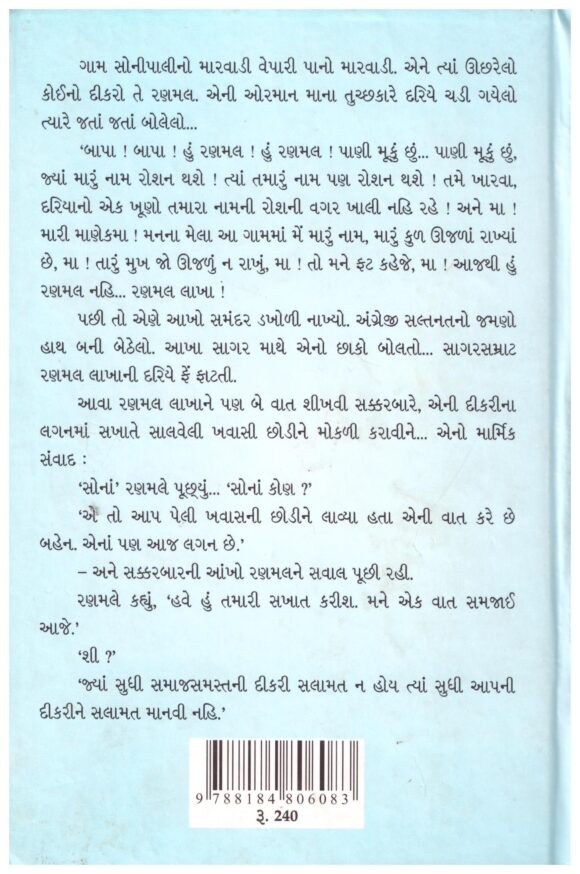 ગામ સોનીપાલીનો મારવાડી વેપારી પાનો મારવાડી. એને ત્યાં ઊછરેલો
કોઈનો દીકરો તે રણમલ. એની ઓરમાન માના તુચ્છકારે દરિયે ચડી ગયેલો
ત્યારે જતાં જતાં બોલેલો...
‘બાપા ! બાપા ! હું રણમલ ! હું રણમલ ! પાણી મૂકું છું... પાણી મૂકું છું,
જ્યાં મારું નામ રોશન થશે ! ત્યાં તમારું નામ પણ રોશન થશે ! તમે ખારવા,
દરિયાનો એક ખૂણો તમારા નામની રોશની વગર ખાલી નહિ રહે ! અને મા !
મારી માણેકમા ! મનના મેલા આ ગામમાં મેં મારું નામ, મારું કુળ ઊજળાં રાખ્યાં
છે, મા ! તારું મુખ જો ઊજળું ન રાખું, મા ! તો મને ફટ કહેજે, મા ! આજથી હું
રણમલ નહિ... રણમલ લાખા !
પછી તો એણે આખો સમંદર ડખોળી નાખ્યો. અંગ્રેજી સલ્તનતનો જમણો
હાથ બની બેઠેલો. આખા સાગર માથે એનો છાકો બોલતો... સાગરસમ્રાટ
રણમલ લાખાની દરિયે ફેં ફાટતી.
આવા રણમલ લાખાને પણ બે વાત શીખવી સક્કરબારે, એની દીકરીના
લગનમાં સખાતે સાલવેલી ખવાસી છોડીને મોકળી કરાવીને... એનો માર્મિક
સંવાદ :
‘સોનાં’ રણમલે પૂછ્યું... ‘સોનાં કોણ ?’
‘એ તો આપ પેલી ખવાસની છોડીને લાવ્યા હતા એની વાત કરે છે
બહેન. એનાં પણ આજ લગન છે.’
– અને સક્કરબારની આંખો રણમલને સવાલ પૂછી રહી.
રણમલે કહ્યું, ‘હવે હું તમારી સખાત કરીશ. મને એક વાત સમજાઈ
આજે.’
‘શી ?’
‘જ્યાં સુધી સમાજસમસ્તની દીકરી સલામત ન હોય ત્યાં સુધી આપની
દીકરીને સલામત માનવી નહિ.’
9 788184 806083
રૂ. 240